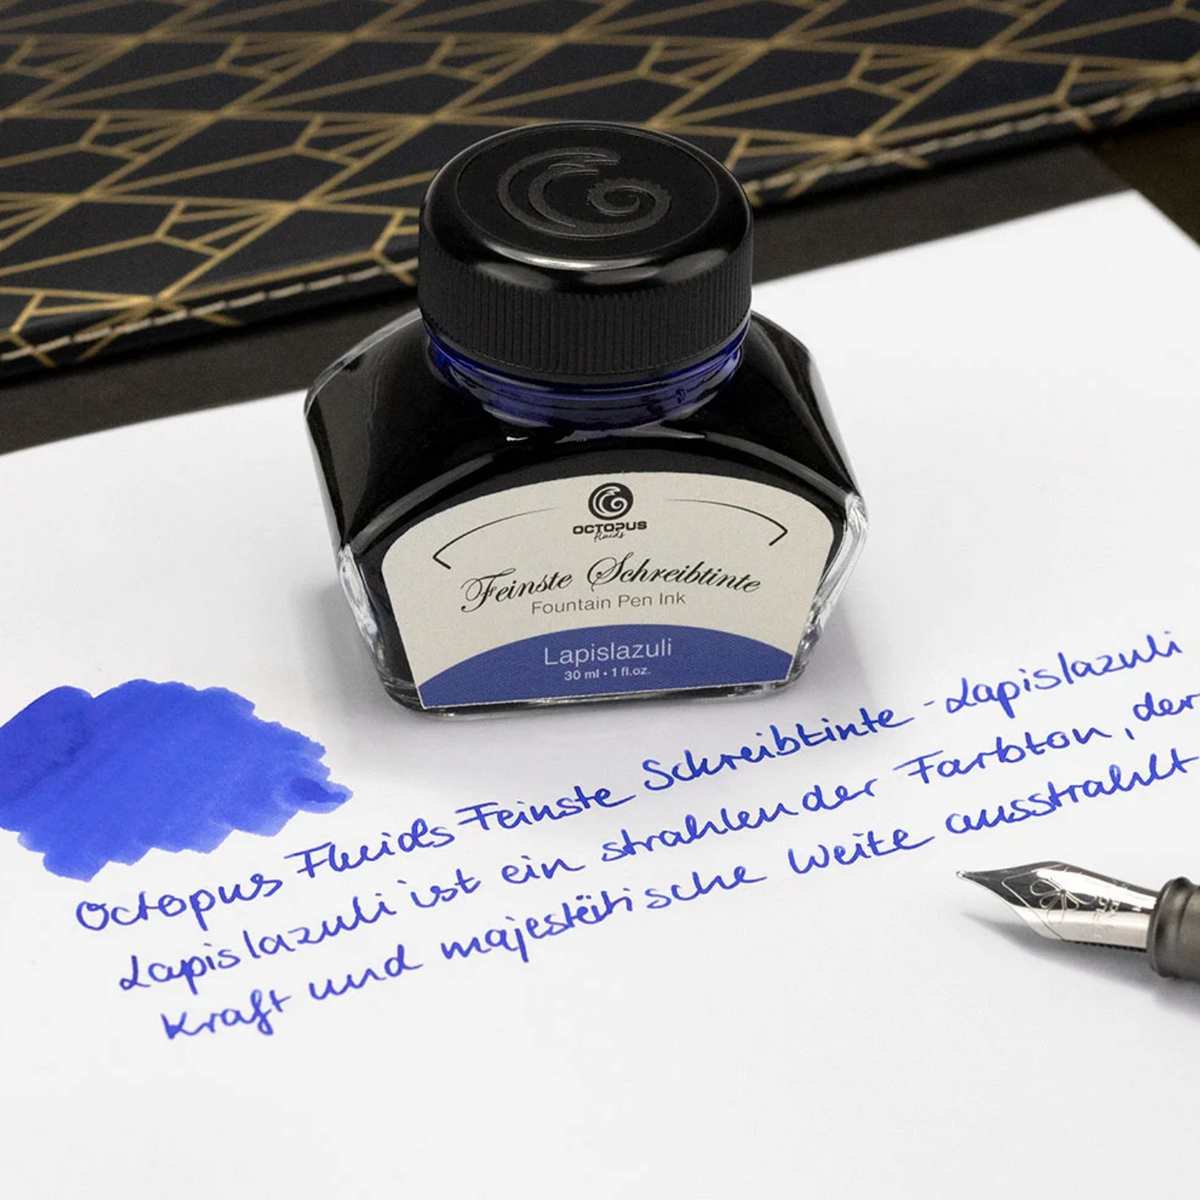 OCTOPUS
fluids
Feinste Schreibtinte
Fountain Pen Ink
Lapislazuli
30 ml • 1 fl.oz.
Octopus Fluids Feinste Schreibtinte - Lapislazuli
Lapislazuli ist ein strahlender Farbton, der
Kraft und majestätische Weite ausstrahlt